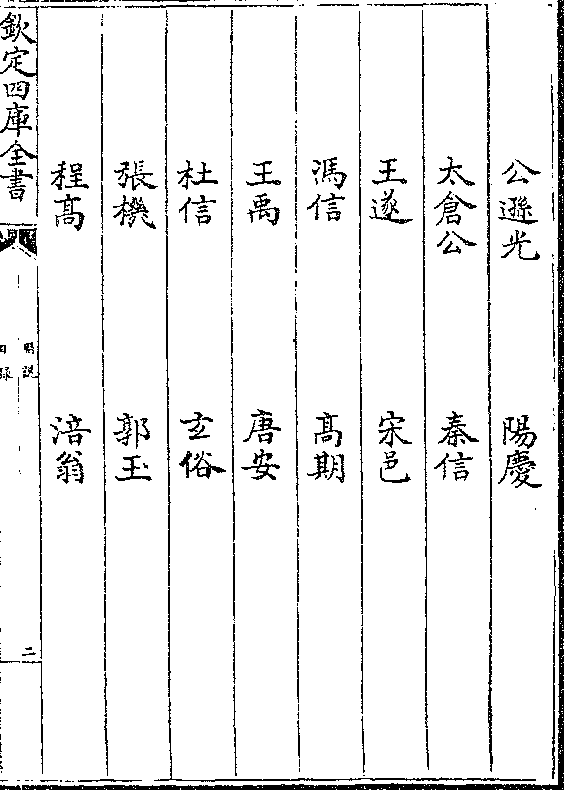 公遜光 陽慶
太倉公 秦信
王遂 宋邑
馮信 髙期
王禹 唐安
杜信 玄俗
張機 郭玉
程髙 涪翁
欽定四庫全書
二